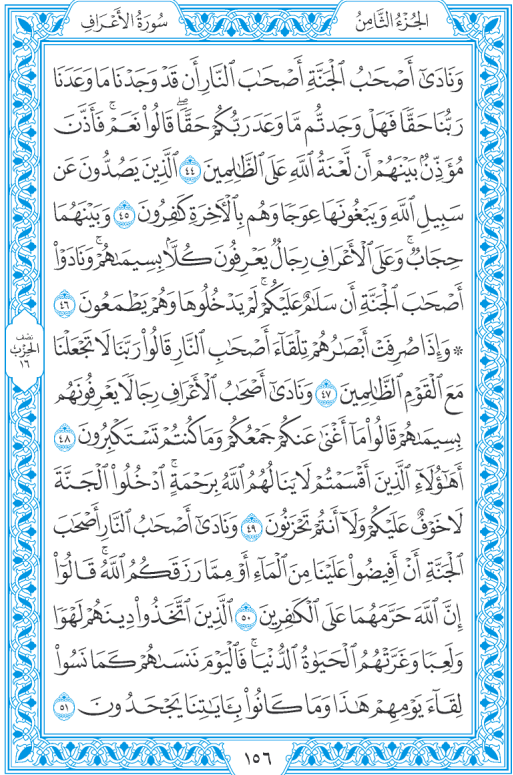 الجُزْءُ الثَّامِنُ
سُورَةُ الأَعْرَافِ
وَنَادَىٰٓ أَصْحَٰبُ ٱلْجَنَّةِ أَصْحَٰبَ ٱلنَّارِ أَن قَدْ وَجَدْنَا مَا وَعَدَنَا
رَبُّنَا حَقًّا فَهَلْ وَجَدتُّم مَّا وَعَدَ رَبُّكُمْ حَقًّاۖ قَالُوا۟ نَعَمْۚ فَأَذَّنَ
مُؤَذِّنٌۢ بَيْنَهُمْ أَن لَّعْنَةُ ٱللَّهِ عَلَى ٱلظَّٰلِمِينَ ٤٤ ٱلَّذِينَ يَصُدُّونَ عَن
سَبِيلِ ٱللَّهِ وَيَبْغُونَهَا عِوَجًا وَهُم بِٱلْءَاخِرَةِ كَٰفِرُونَ ٤٥ وَبَيْنَهُمَا
حِجَابٌۚ وَعَلَى ٱلْأَعْرَافِ رِجَالٌ يَعْرِفُونَ كُلًّۢا بِسِيمَىٰهُمْۚ وَنَادَوْا۟
أَصْحَٰبَ ٱلْجَنَّةِ أَن سَلَٰمٌ عَلَيْكُمْۚ لَمْ يَدْخُلُوهَا وَهُمْ يَطْمَعُونَ ٤٦
۞ وَإِذَا صُرِفَتْ أَبْصَٰرُهُمْ تِلْقَآءَ أَصْحَٰبِ ٱلنَّارِ قَالُوا۟ رَبَّنَا لَا تَجْعَلْنَا
مَعَ ٱلْقَوْمِ ٱلظَّٰلِمِينَ ٤٧ وَنَادَىٰٓ أَصْحَٰبُ ٱلْأَعْرَافِ رِجَالًا يَعْرِفُونَهُم
بِسِيمَىٰهُمْ قَالُوا۟ مَآ أَغْنَىٰ عَنكُمْ جَمْعُكُمْ وَمَا كُنتُمْ تَسْتَكْبِرُونَ ٤٨
أَهَٰٓؤُلَآءِ ٱلَّذِينَ أَقْسَمْتُمْ لَا يَنَالُهُمُ ٱللَّهُ بِرَحْمَةٍۚ ٱدْخُلُوا۟ ٱلْجَنَّةَ
لَا خَوْفٌ عَلَيْكُمْ وَلَآ أَنتُمْ تَحْزَنُونَ ٤٩ وَنَادَىٰٓ أَصْحَٰبُ ٱلنَّارِ أَصْحَٰبَ
ٱلْجَنَّةِ أَنْ أَفِيضُوا۟ عَلَيْنَا مِنَ ٱلْمَآءِ أَوْ مِمَّا رَزَقَكُمُ ٱللَّهُۚ قَالُوٓا۟
إِنَّ ٱللَّهَ حَرَّمَهُمَا عَلَى ٱلْكَٰفِرِينَ ٥٠ ٱلَّذِينَ ٱتَّخَذُوا۟ دِينَهُمْ لَهْوًا
وَلَعِبًا وَغَرَّتْهُمُ ٱلْحَيَوٰةُ ٱلدُّنْيَاۚ فَٱلْيَوْمَ نَنسَىٰهُمْ كَمَا نَسُوا۟
لِقَآءَ يَوْمِهِمْ هَٰذَا وَمَا كَانُوا۟ بِـَٔايَٰتِنَا يَجْحَدُونَ ٥١
نصف
الحزب
١٦
١٥٦